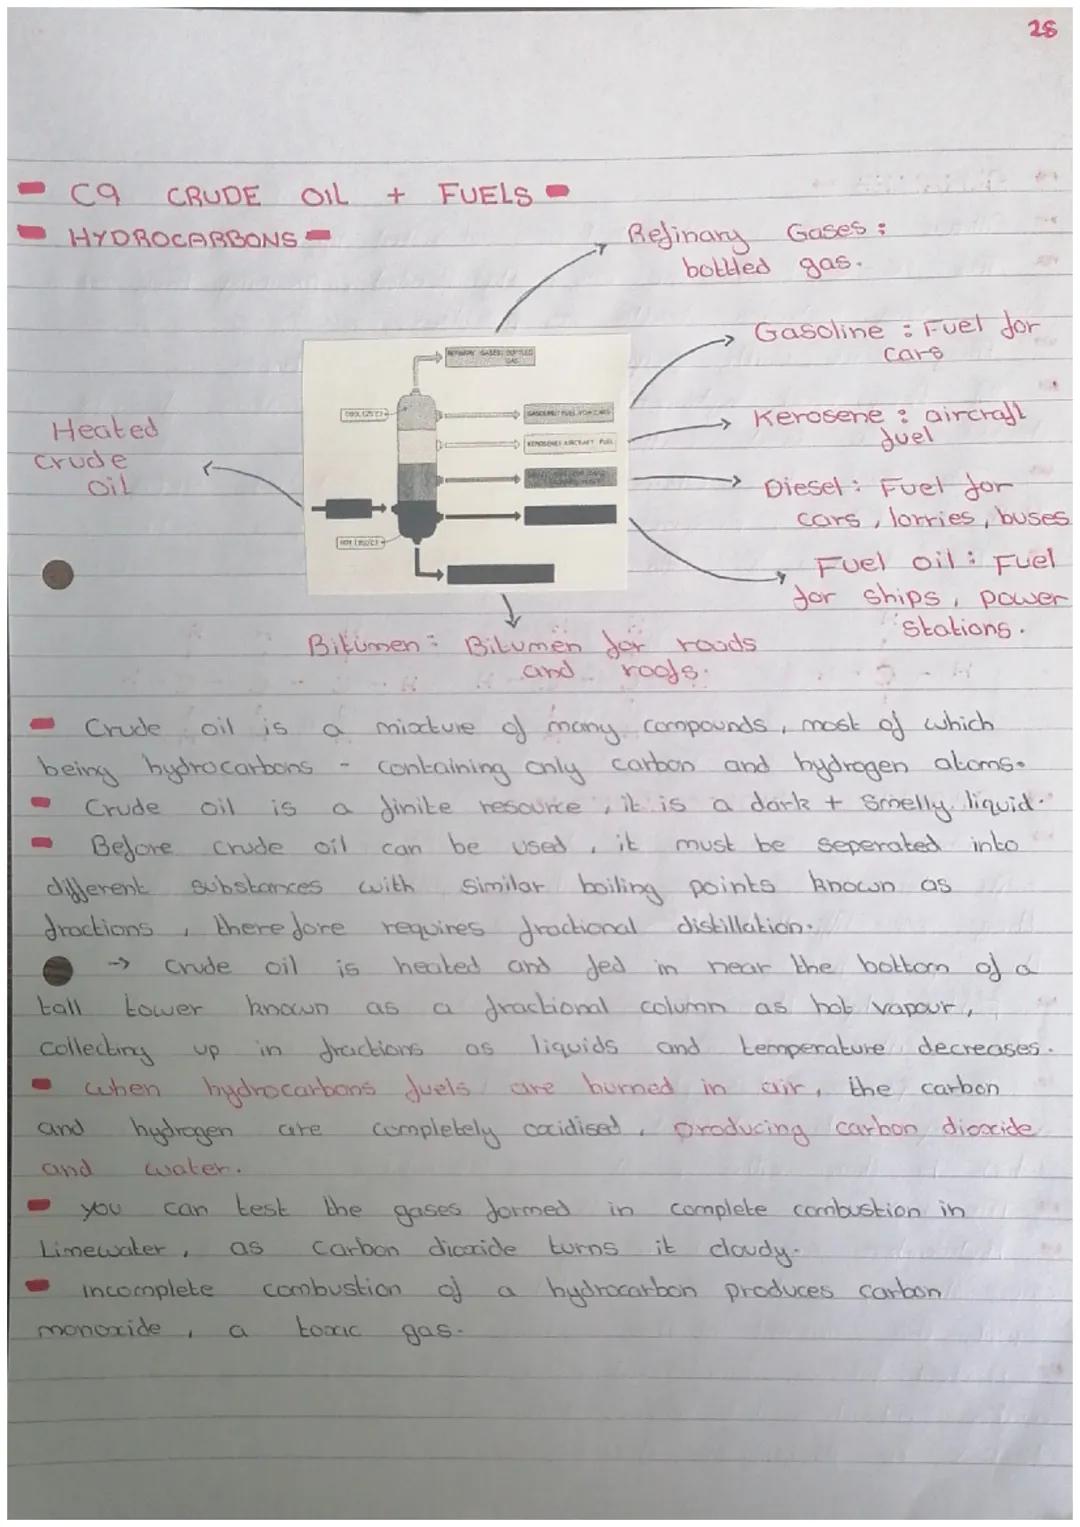 28
C9 CRUDE OIL + FUELS
HYDROCARBONS
Refinary Gases :
bottled gas.
Gasoline : Fuel for
cars
Kerosene : aircraft
fuel
Heated
crude
oil
Diesel : Fuel for
cars, lorries, buses
Fuel oil : Fuel
for ships, power
stations.
REFINERY GASES: BOTTLED
GAS
COOL (25°C)
GASOLINE: FUEL FOR CARS
KEROSENE: AIRCRAFT FUEL
Bitumen : Bitumen for roads
and roofs.
Crude oil is a mixture of many compounds, most of which
being hydrocarbons - containing only carbon and hydrogen atoms.
Crude oil is a finite resource, it is a dark + smelly liquid.
Before crude oil can be used, it must be seperated into
different substances with similar boiling points known as
fractions, therefore requires fractional distillation.
→ Crude oil is heated and fed in near the bottom of a
tall tower known as a fractional column as hot vapour,
collecting up in fractions as liquids and temperature decreases.
when hydrocarbons fuels are burned in air, the carbon
and hydrogen are completely oxidised, producing carbon dioxide
and water.
you can test the gases formed in complete combustion in
Limewater, as carbon dioxide turns it cloudy.
incomplete combustion of a hydrocarbon produces carbon
monoxide, a toxic gas.